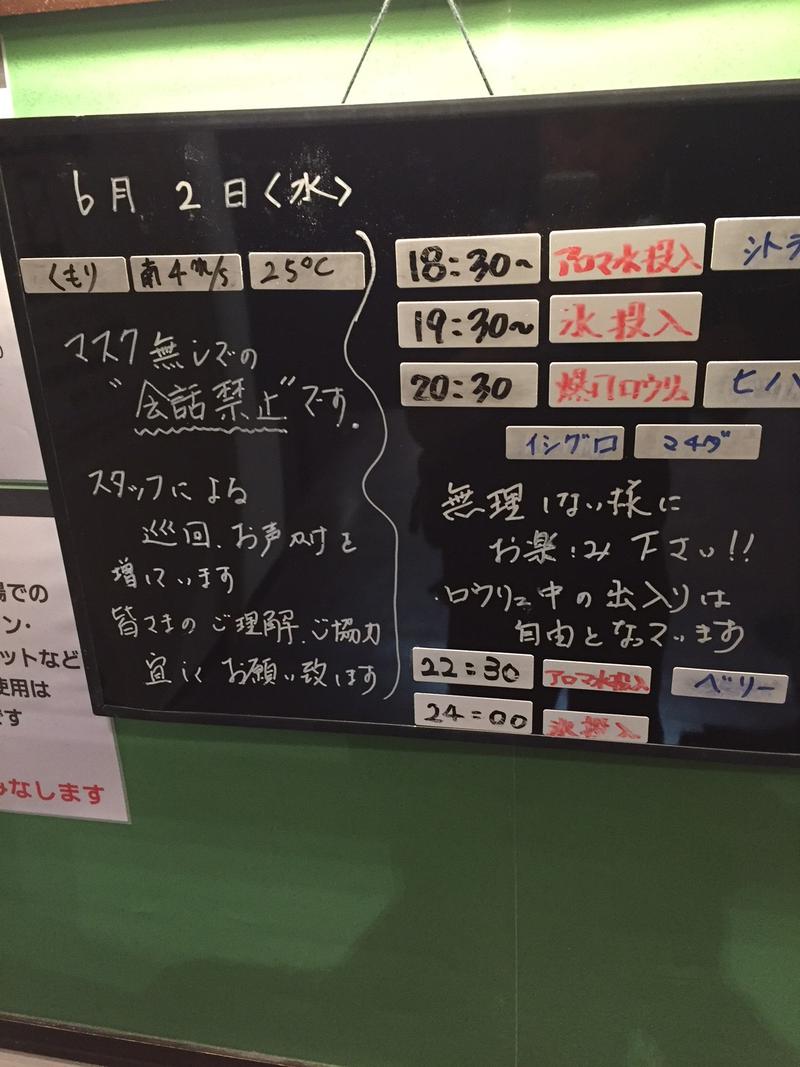 6月 2日〈水〉
くもり 南4m/s 25℃
マスク無しでの
"会話禁止"です.
スタッフによる
巡回、お声かけを
増しています
皆さまのご理解、ご協力
宜しくお願い致します
18:30~ アロマ水投入 シトラ
19:30~ 氷投入
20:30 爆門ロウリュ ヒノ
イシグロ マキダ
無理しない様に
お楽しみ下さい!!
・ロウリュ中の出入りは
自由となっています
22:30 アロマ水投入 ベリー
24:00 氷投入
場での
ン・
ットなど
使用は
です
みなします